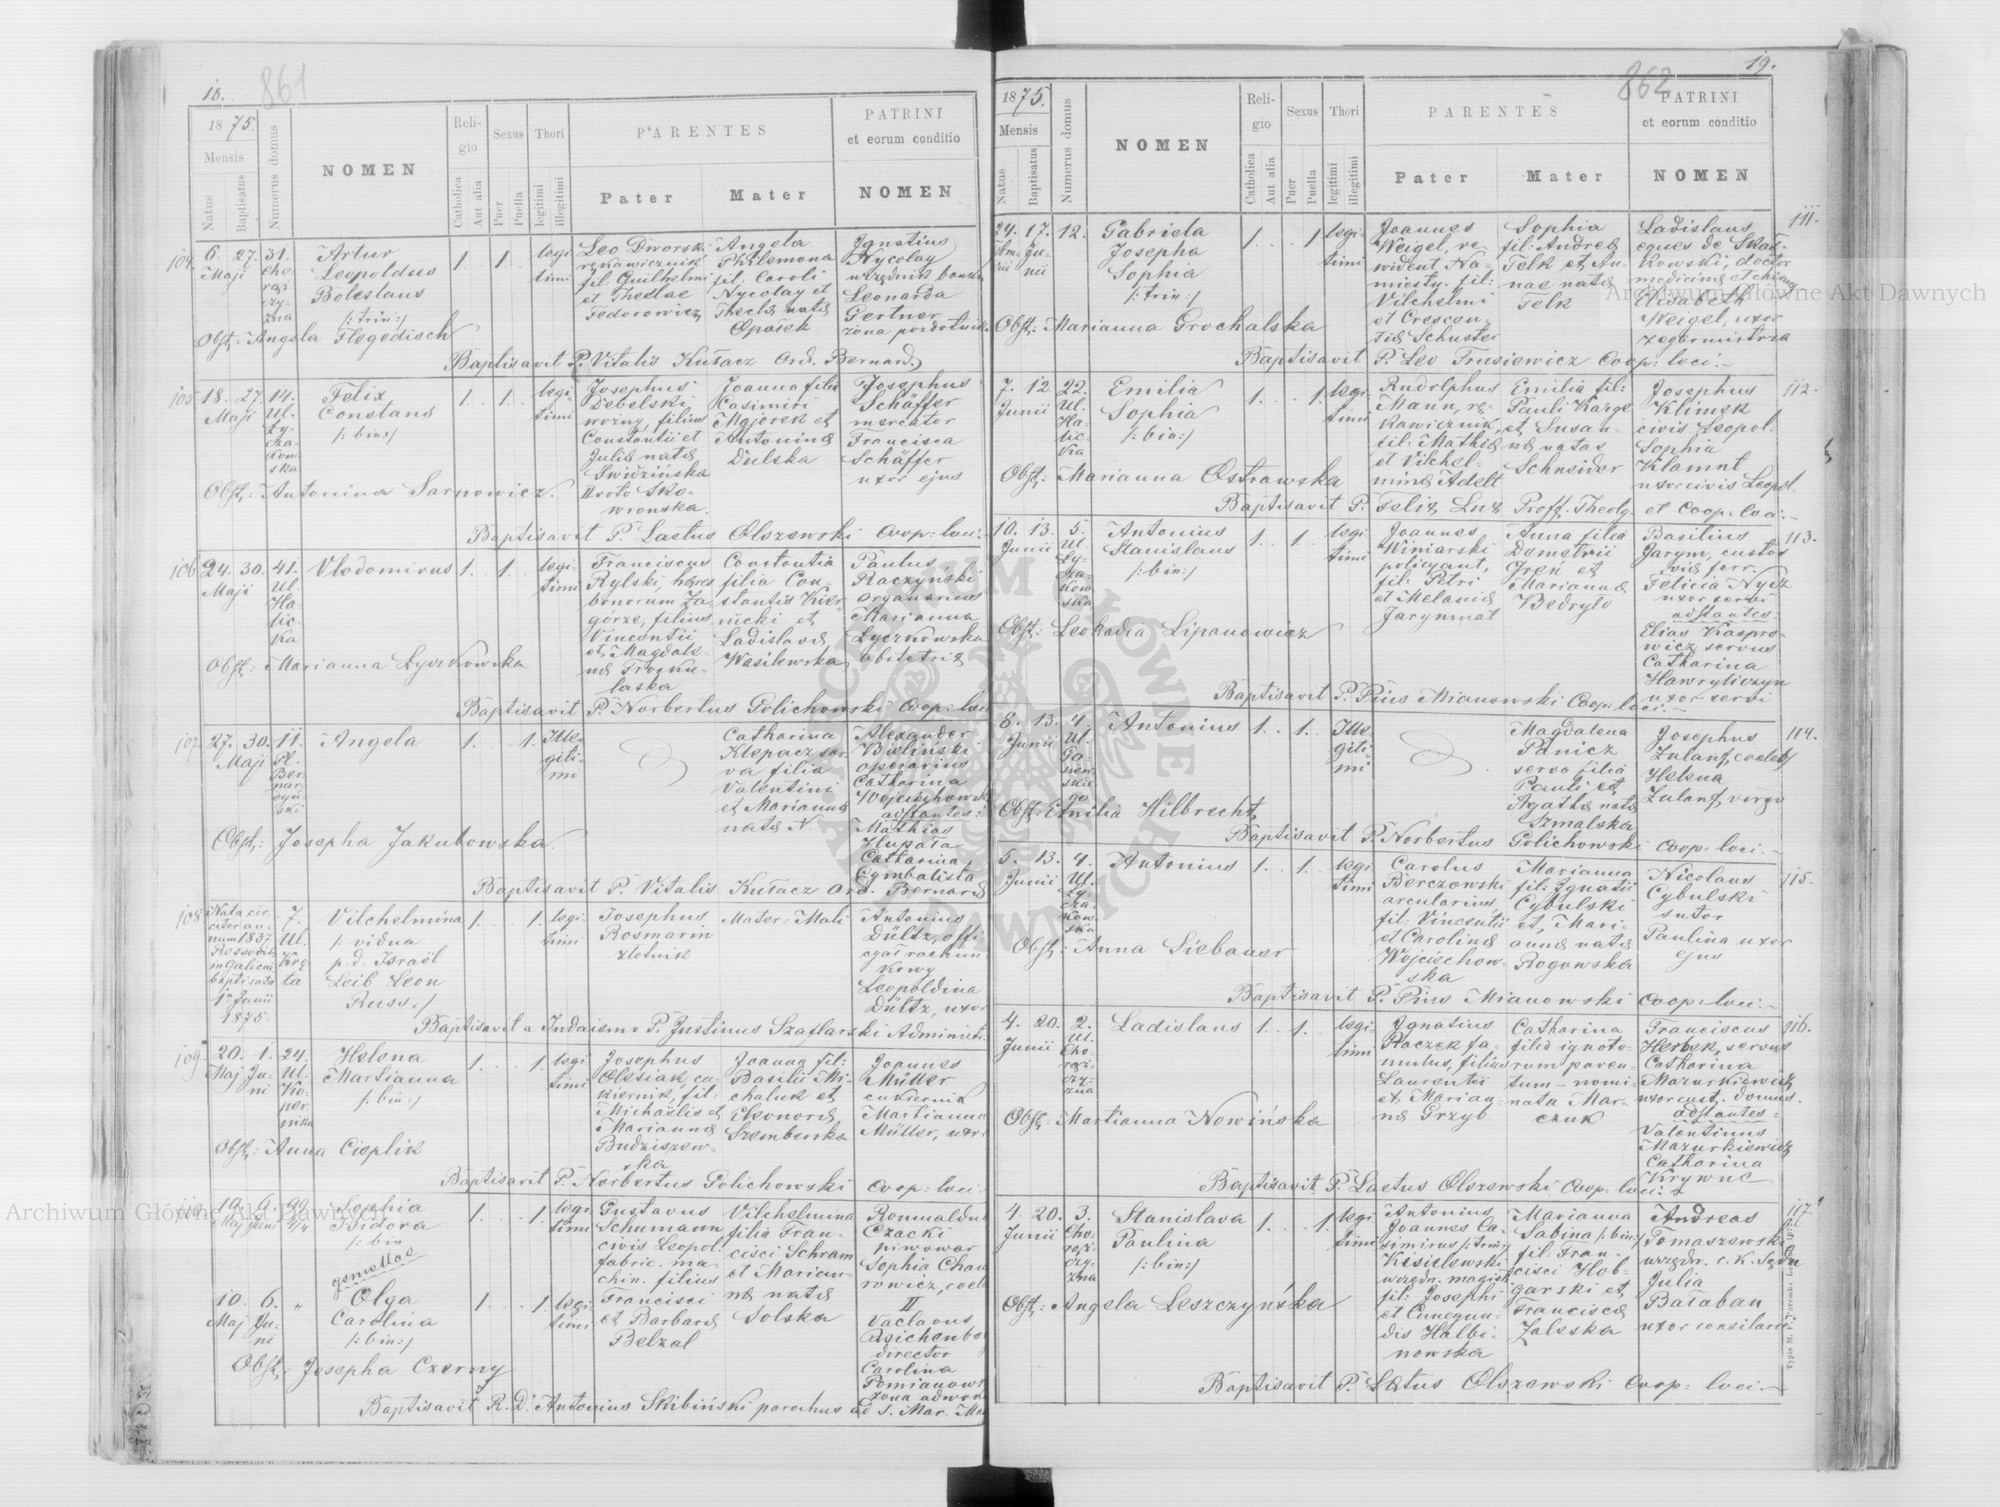 18. 861
1875.
Mensis
Natus
Baptisatus
Numerus domus
NOMEN
Religio
Catholica
Aut alia
Sexus
Puer
Puella
Thori
legitimi
illegitimi
PARENTES
Pater
Mater
PATRINI
et eorum conditio
NOMEN
104
6. 27. 31.
Maji Cho
rąż
czy-
zna
Artur
Leopoldus
Boleslaus
/: trin:/
1. 1. legi
timi
Leo Dworski
rękawicznik
fil: Guilhelmi
et Theclae
Fedorowicz
Angela
Philemona
fil: Caroli
Nycolay et
Thecla nata
Opałek
Ignatius
Nycolay
urzędnik banku
Leonarda
Gertner
żona
Obst: Angela Hegedisch
Baptisavit P. Vitalis Kułacz Ord. Bernard.
105
18. 27. 14.
Maji Ul.
Ły-
cza-
kow-
ska
Felix
Constans
/: bin:/
1. 1. legi
timi
Josephus
Debelski
wozny, filius
Constantii et
Juliæ natæ
Swidzińska
II voto Sko-
wronska.
Joanna filia
Casimiri
Majorek et
Antoninæ
Dulska
Josephus
Schäffer
mercator
Francisca
Schäffer
uxor ejus
Obst: Antonina Sarnowicz.
Baptisavit P. Laetus Olszewski Coop: loci.
106
24. 30. 41.
Maji Ul.
Ha-
lic-
ka
Vlodomirus
1. 1. legi-
timi
Franciscus
Rylski, hæres
bonorum Za-
górze, filius
Vincentii
et Magdale-
næ Trosku-
laska
Constantia
filia Con-
stantis Kier-
nicki et
Ladislavæ
Wasilewska
Paulus
Raczyński
organarius
Marianna
Łyczkowska
obstetrix
Obst: Marianna Łyczkowska
Baptisavit P. Norbertus Golichowski Coop: loci
107
27. 30. 11.
Maji Pl.
Ber-
nar-
dyń-
ski
Angela
1. 1. Ille-
giti-
mi
Catharina
Klepacz ser-
va filia
Valentini
et Mariannæ
natæ N.
Alexander
Bieliński
operarius
Catharina
Wojciechowsk
adstantes:
Mathias
Hupała
Catharina
Cymbalista
Obst: Josepha Jakubowska.
Baptisavit P. Vitalis Kułacz Ord. Bernard
108
Nata cir-
citer an-
num 1837
in Galicia
baptisata
1a Junii
1875.
7.
Ul.
Krę
ta
Vilchelmina
/: vidua
p. d. Israël
Leib Leon
Russ:/
1. 1. legi
timi
Josephus
Rosmarin
złotnik
Mater: Mali
Antonius
Dültz, offi
cyał rachun
kowy
Leopoldina
Dültz, uxor
Baptisavit a Judaismo P. Justinus Szaflarski Administ
109
20. 1. 24.
Maj Ju- Ul.
ni Ko-
per-
nika
Helena
Martianna
/: bin:/
1. 1. legi
timi
Josephus
Olesiak, cu-
kiernik, fil:
Michaëlis et
Mariannæ
Budziszew-
ska
Joanna fil:
Basilii Mi-
chaluk et
Eleonoræ
Szemberska
Joannes
Müller
cukiernik
Martianna
Müller, uxor
Obst: Anna Cieplik
Baptisavit P. Norbertus Golichowski Coop: loci
10. 6.
Maj Juni
Sophia
Isidora
/: bin
gemellae
1. 1. legi
timi
Gustavus
Schumann
civis Leopol:
fabric. ma-
chin. filius
Francisci
et Barbaræ
Belzal
Vilchelmina
filia Fran-
cisci Schram
et Marian-
næ natæ
Solska
Romuald
Czacki
piwowar
Sophia
rowicz, coel
10. 6. „
Maj Ju-
ni
Olga
Carolina
/: bin:/
1. 1. legi
timi
II
Vaclavus
director
Carolina
Pomianows
żona adwok
Obst: Josepha Czerny
Baptisavit R. D. Antonius Skibiński parochus ad S. Mar. Ma
19. 862
1875.
Mensis
Natus
Baptisatus
Numerus domus
NOMEN
Religio
Catholica
Aut alia
Sexus
Puer
Puella
Thori
legitimi
illegitimi
PARENTES
Pater
Mater
PATRINI
et eorum conditio
NOMEN
111.
24. 17. 12.
Ju-
nii
Gabriela
Josepha
Sophia
/: trin:/
1. 1 legi
timi
Joannes
Weigel, re-
wident Na-
miestn. fil:
Vilchelmi
et Crescen-
tiæ Schuster
Sophia
fil: Andreæ
Telk et An-
nae natæ
Telk
Ladislaus
eques de
kowski, doctor
medicinæ et
Elisabeth
Weigel, uxor
zegarmistrza
Obst: Marianna Grochalska
Baptisavit P. Leo Trusiewicz Coop: loci.-
112.
7. 12 22.
Junii Ul.
Ha-
lic-
ka
Emilia
Sophia
/: bin:/
1. 1. legi
timi
Rudolphus
Mann, rę-
kawicznik,
fil: Mathiæ
et Vilchel-
minæ Adelt
Emilia fil:
Pauli Karge
et Susan-
næ natæ
Schneider
Josephus
Klimek
civis Leopol:
Sophia
Klamnt
uxor civis Leopol.
Obst: Marianna Ostrowska
Baptisavit P. Felix Lux Proff. Theolg. et Coop: loci:-
113.
10. 13. 5.
Junii Ul.
Ły-
cza-
kow-
ska
Antonius
Stanislaus
/: bin:/
1. 1. legi
timi
Joannes
Winiarski
policyant,
fil: Petri
et Melaniæ
Jarymnat
Anna filia
Demetrii
Jreń et
Mariannæ
Bedryło
Basilius
Jarym, custos
viæ ferr.
Felicia Nycz
uxor servi
adstantes:
Elias Kaspro-
wicz servus
Catharina
Hawryliczyn
uxor servi
Obst: Leokadia Lipanowicz
Baptisavit P. Pius Mianowski Coop: loci.-
114.
8. 13. 4.
Junii Ul.
Antonius
1. 1. Ille-
giti-
mi
Magdalena
Panicz
serva filia
Pauli et
Agathæ natæ
Szmalska
Josephus
Zulauf, coelebs
Helena
Zulauf, virgo
Obst: Emilia Hilbrecht
Baptisavit P. Norbertus Golichowski Coop: loci.-
115.
5. 13. 4.
Junii Ul.
Ły-
cza-
kow-
ska
Antonius
1. 1. legi
timi
Carolus
Berezowski
arcularius
fil: Vincentii
et Carolinæ
Wojciechow-
ska
Marianna
fil: Ignatii
Cybulski
et Mari-
annæ natæ
Rogowska
Nicolaus
Cybulski
sutor
Paulina uxor
ejus
Obst: Anna Siebauer
Baptisavit P. Pius Mianowski Coop: loci.-
116.
4. 20. 2.
Junii Ul.
Cho-
rąż-
czy-
zna
Ladislaus
1. 1. legi.
timi
Ignatius
Raczek fa-
mulus, filius
Laurentii
et Marian-
næ Grzyb
Catharina
filia ignoto-
rum paren-
tum - nomi-
nata Mar-
czuk
Franciscus
Herbek, servus
Catharina
Mazurkiewicz
uxor cust. domus.
adstantes:
Valentinus
Mazurkiewicz
Catharina
Krywne
Obst: Martianna Nowińska
Baptisavit P. Laetus Olszewski Coop: loci.
117.
1. 20. 3.
Junii Cho-
rąż-
czy-
zna
Stanislava
Paulina
/: bin:/
1. 1. legi
timi
Antonius
Joannes Ca-
simirus /: trin:/
Kisielewski
urzędn. magist
fil: Josephi
et Cunegun-
dis Halbi-
nowska
Marianna
Sabina /: bin:/
fil: Fran-
cisci Hob-
garski et
Franciscæ
Zaleska
Andreas
Tomaszewski
urzędn. c. k. Sądu
Julia
Bałaban
uxor consiliarii
Obst: Angela Leszczyńska
Baptisavit P. Lætus Olszewski Coop: loci.-
Archiwum Główne Akt Dawnych
Archiwum Główne Akt Dawnych
ARCHIWUM GŁÓWNE AKT DAWNYCH